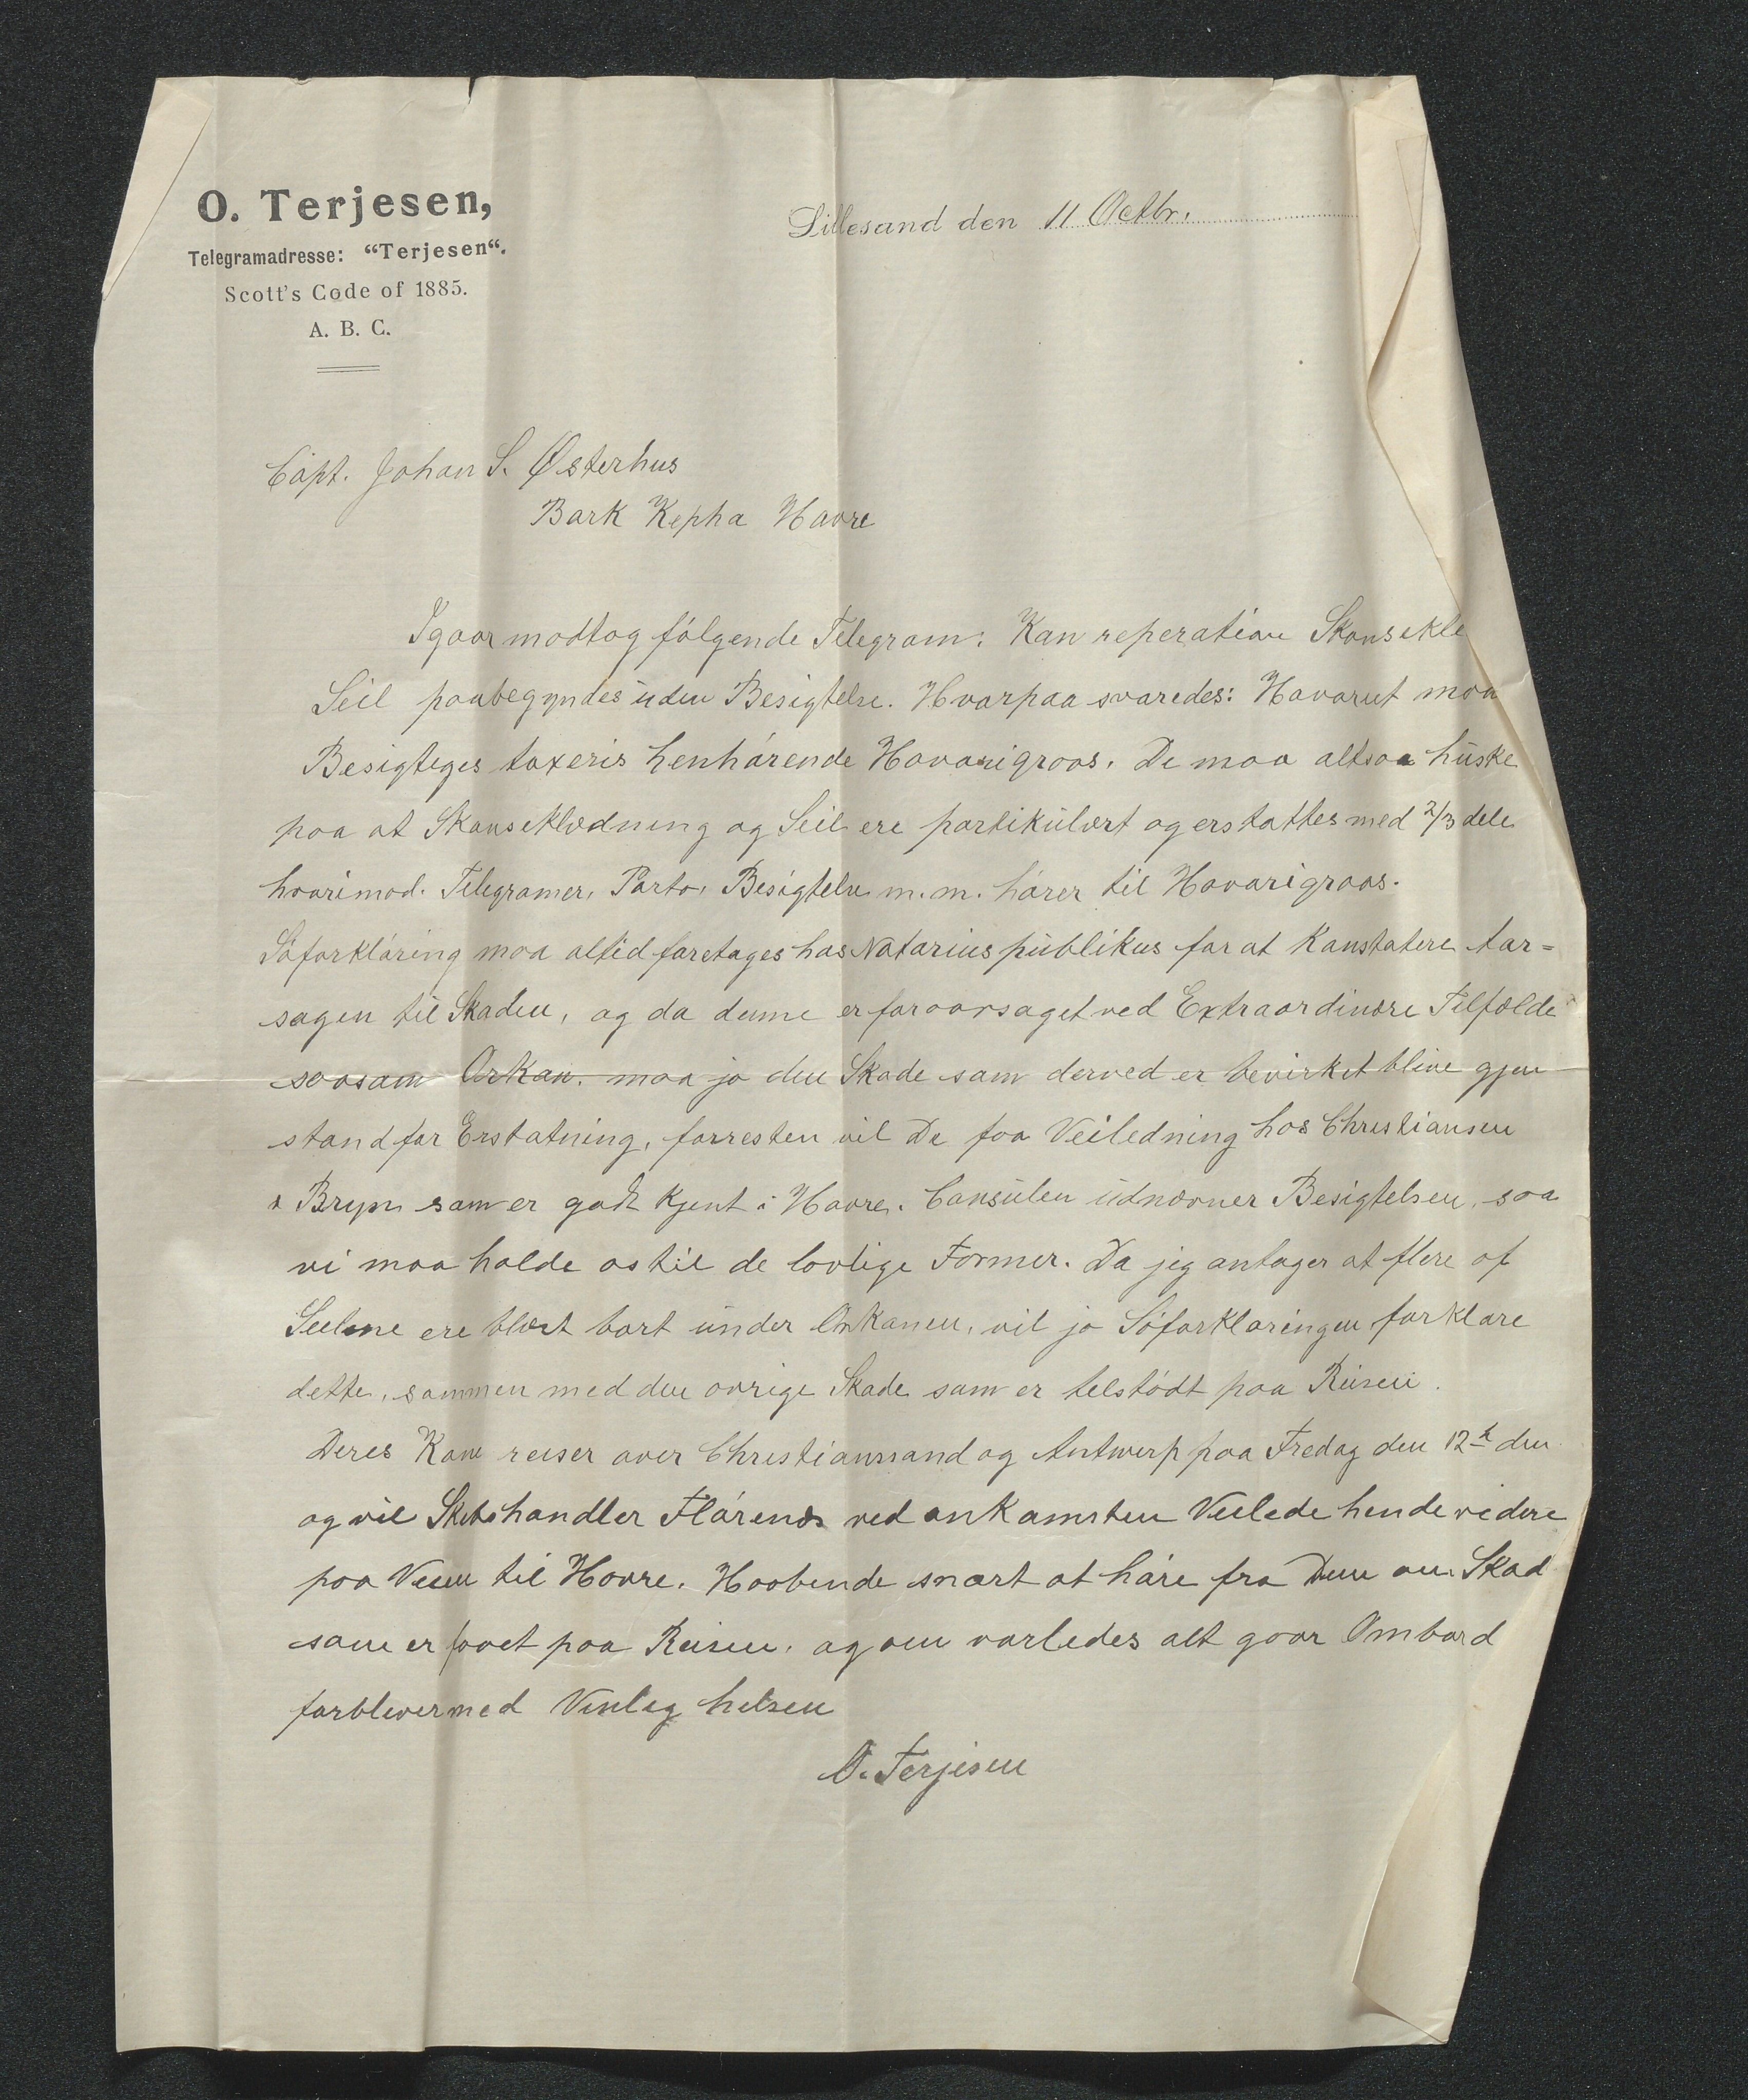 O. Terjesen,
Telegramadresse: “Terjesen“.
Scott's Code of 1885.
A. B. C.
Lillesand den 11 Octbr.
Capt. Johan S. Østerhus
Bark Kepha Havre
Igaar modtog følgende Telegram: Kan reperation Skansekle
Seil paabegyndes uden Besigtelse. Hvorpaa svaredes: Havarut maa
Besigtiges taxeris henhørende Havarigroos. De maa altsaa huske
paa at Skanseklædning og Seil ere partikulært og erstattes med 2/3 dele
hvorimod. Telegramer, Porto, Besigtelse m.m. hører til Havarigroos.
Søforklaring maa altid foretages hos Notarius publikus for at Konstatere Aar=
sagen til Skaden, og da denne er foraarsaget ved Extraordinære Tilfælde
saasom Orkan. maa jo den Skade som derved er bevirket blive gjen
stand for Erstatning, forresten vil De faa Veiledning hos Christiansen
& Bryn som er godt Kjent i Havre. Consulen udnævner Besigtelsen, saa
vi maa holde os til de lovlige Former. Da jeg antager at flere af
Seilene ere blæst bort under Orkanen, vil jo Søforklaringen forklare
dette, sammen med den øvrige Skade som er tilstødt paa Reisen.
Deres Kone reiser over Christianssand og Antwerp paa Fredag den 12te den
og vil Skibshandler Flørends ved ankomsten Veilede hende videre
paa Veien til Havre. Haabende snart at høre fra Dem om Skad
som er faaet paa Reisen. og om vorledes alt gaar Ombord
forbliver med Venlig hilsen
O. Terjesen